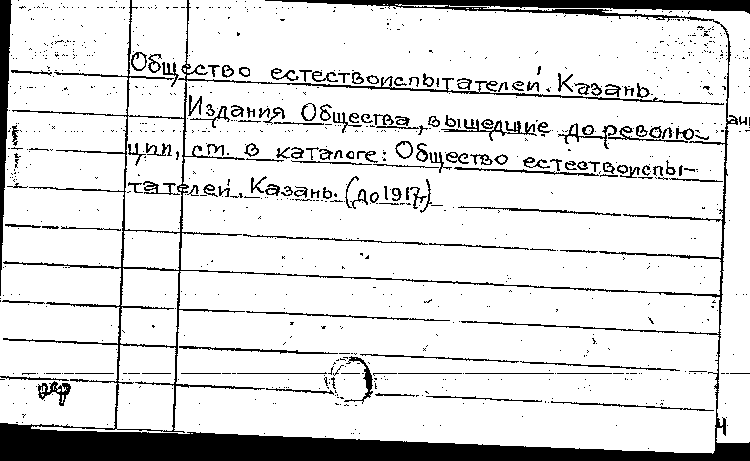 Общество естествоиспытателей. Казань.
Издания Общества, вышедшие до револю-
ции, см. в каталоге: Общество естествоиспы-
тателей. Казань. (до 1917г.)